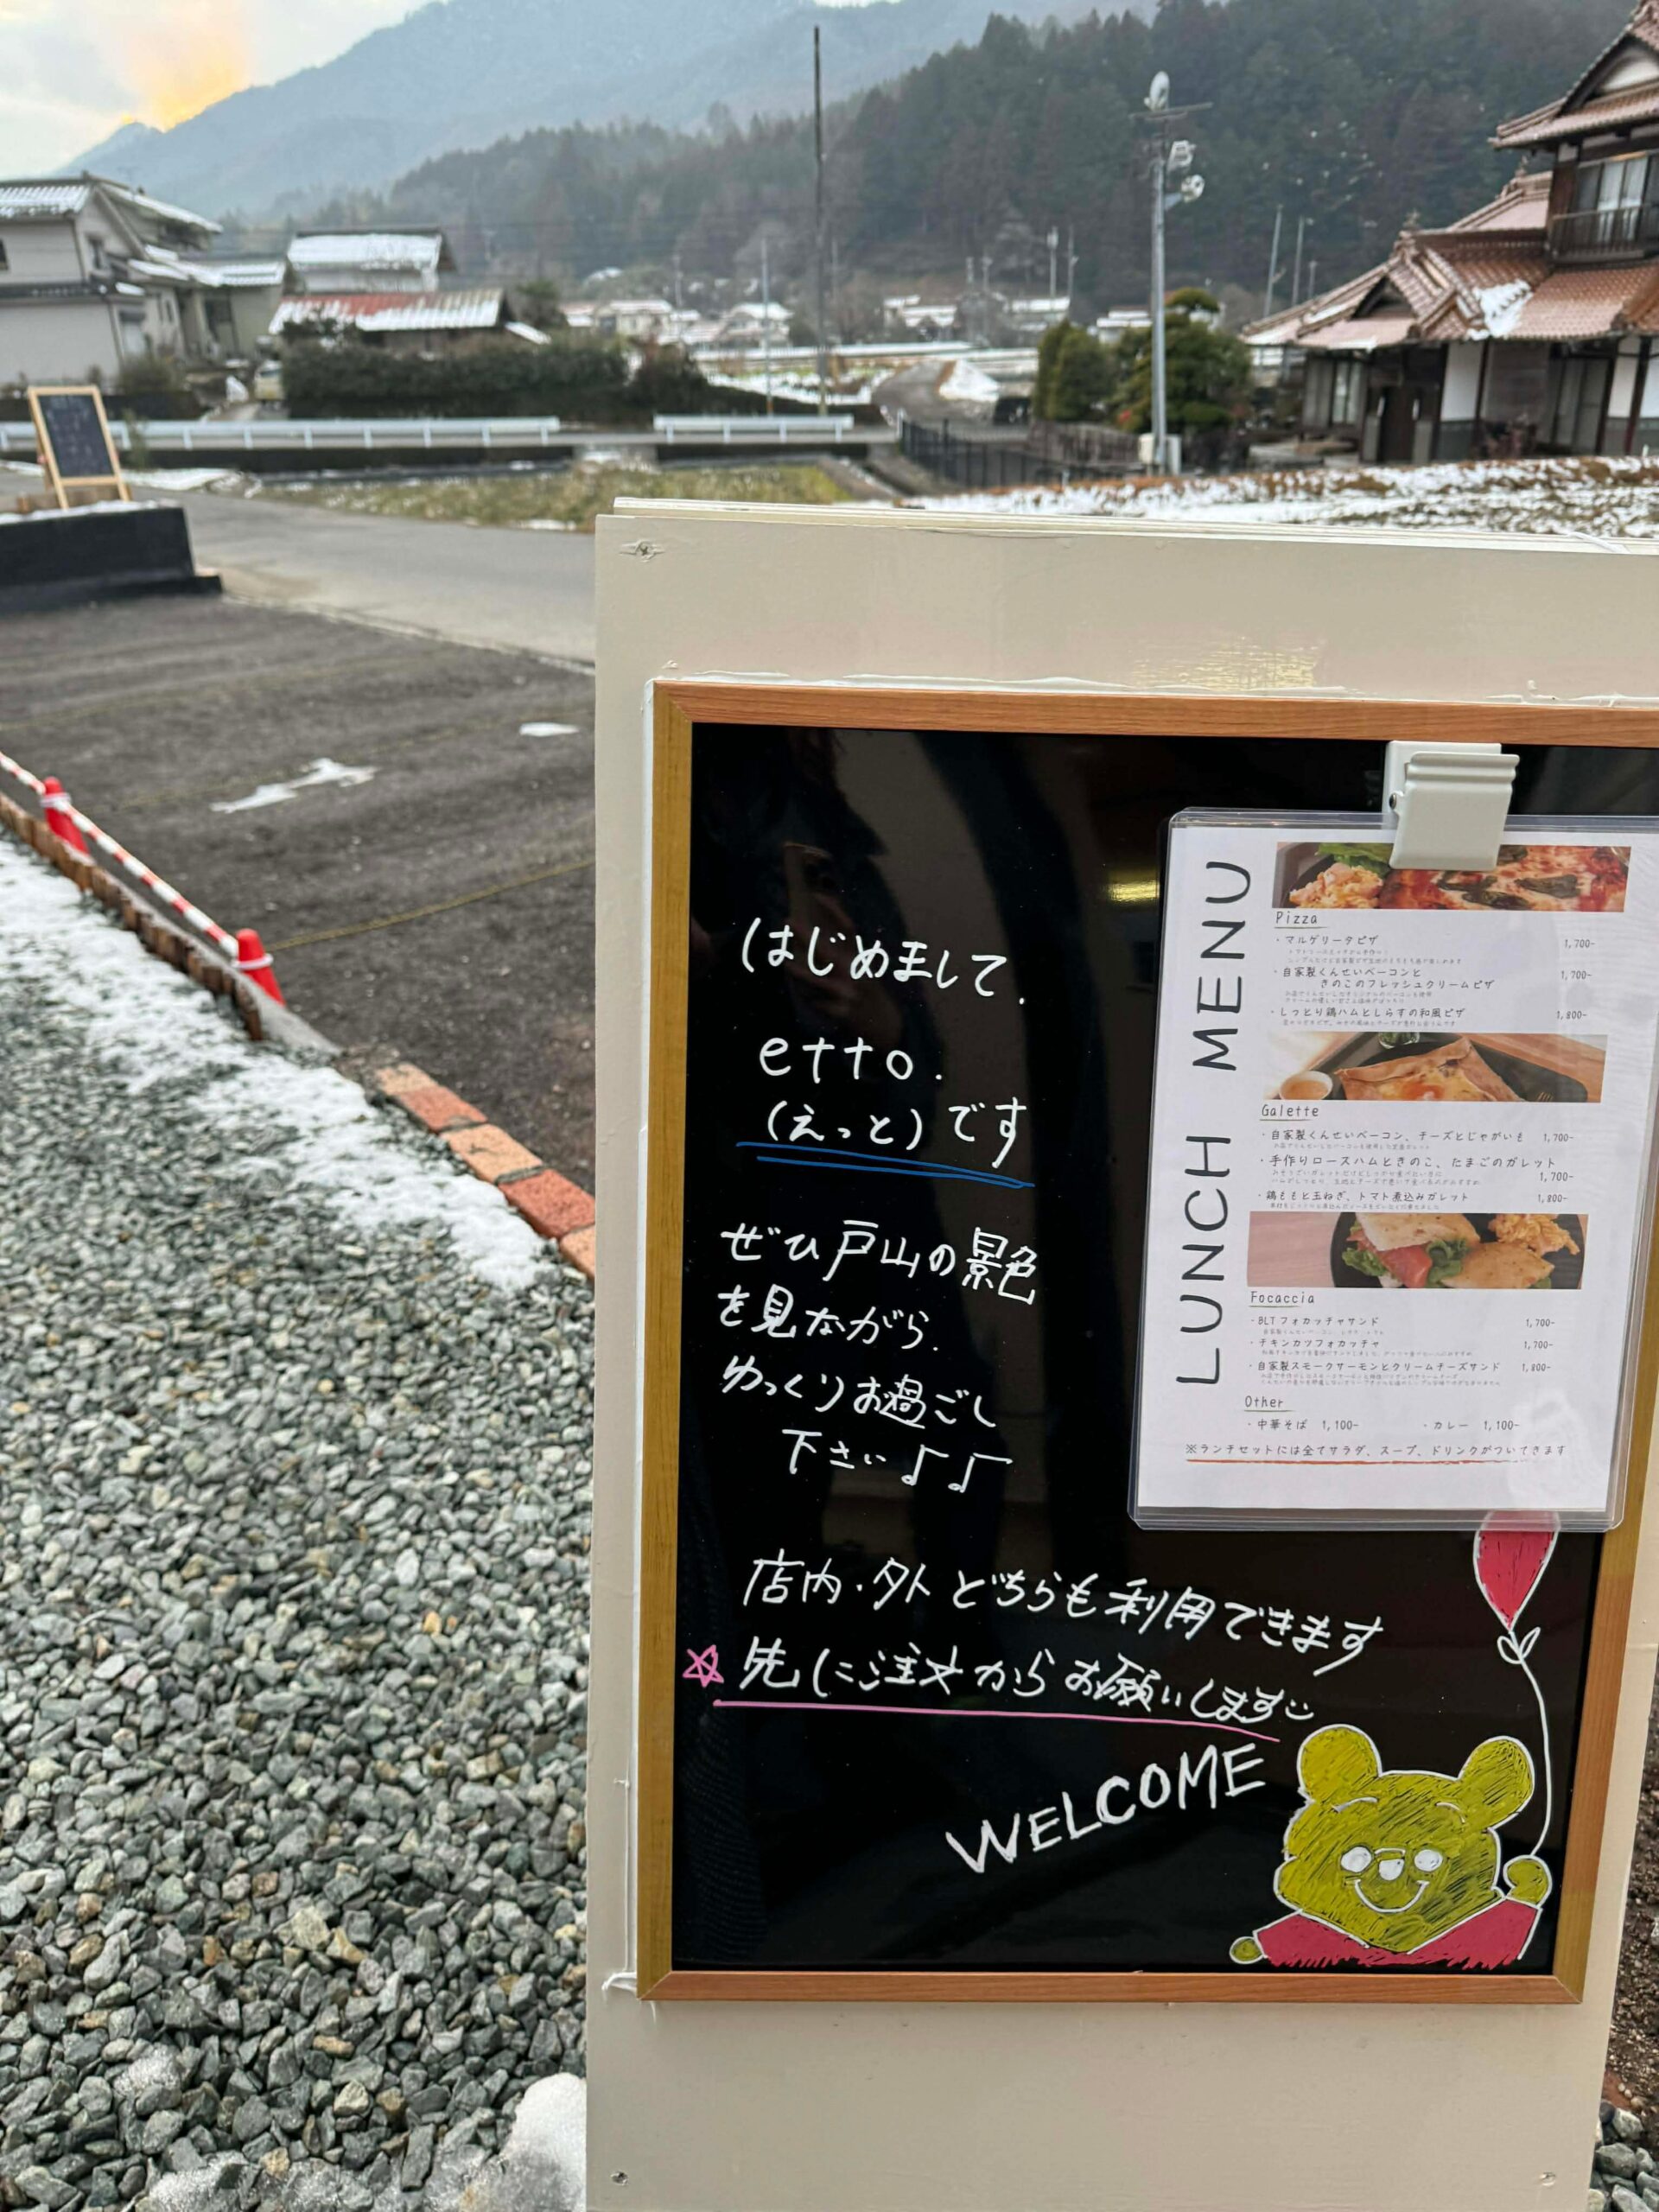 はじめまして.
etto.
(えっと)です
ぜひ戸山の景色
を見ながら.
ゆっくりお過ごし
下さい♪♪
店内・外どちらも利用できます
☆先にご注文からお願いします
WELCOME
LUNCH MENU
Pizza
・マルゲリータピザ 1,700-
・自家製くんせいベーコンと
きのこのフレッシュクリームピザ 1,700-
・しっとり鶏ハムとしらすの和風ピザ 1,800-
Galette
・自家製くんせいベーコン、チーズとじゃがいも 1,700-
・手作りロースハムときのこ、たまごのガレット
1,700-
・鶏ももと玉ねぎ、トマト煮込みガレット 1,800-
Focaccia
・BLTフォカッチャサンド 1,700-
・チキンカツフォカッチャ 1,700-
・自家製スモークサーモンとクリームチーズサンド 1,800-
Other
・中華そば 1,100- ・カレー 1,100-
※ランチセットには全てサラダ、スープ、ドリンクがついてきます